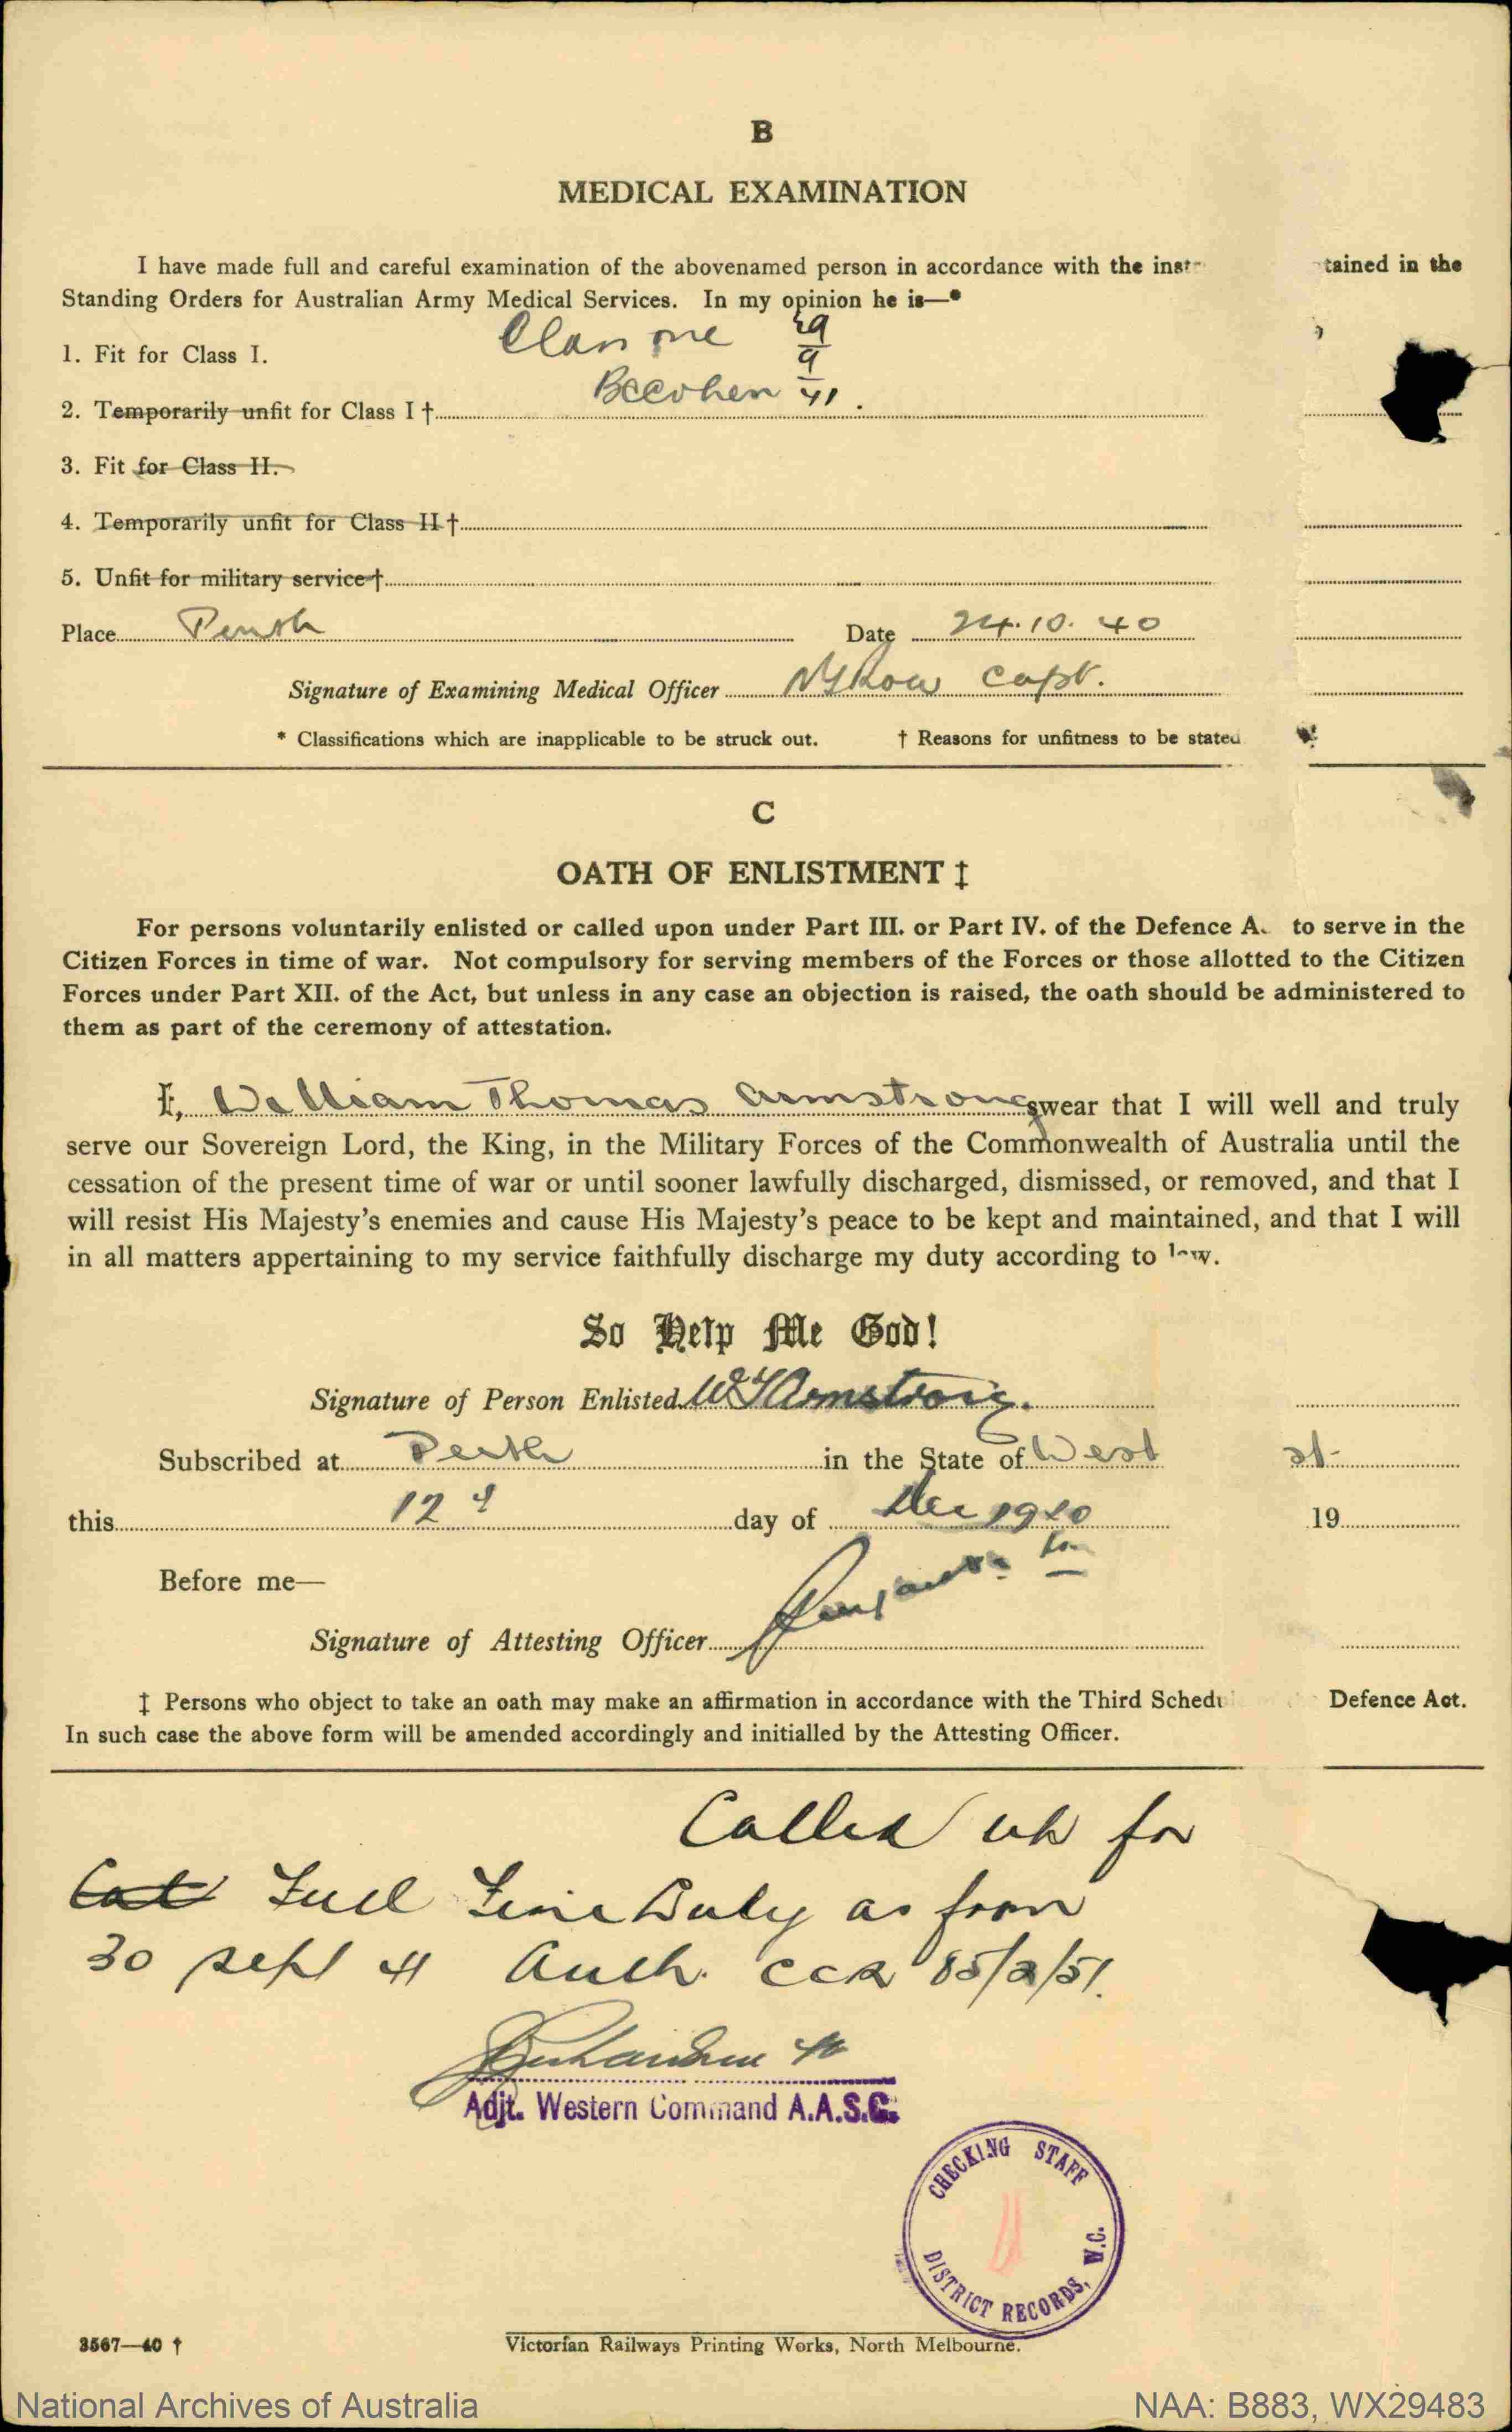 B
MEDICAL EXAMINATION
I have made full and careful examination of the abovenamed person in accordance with the inst tained in the
Standing Orders for Australian Army Medical Services. In my opinion he is—*
Class one 29
1. Fit for Class I. 9
41
2. Temporarily unfit for Class I †
3. Fit for Class II.
4. Temporarily unfit for Class II †
5. Unfit for military service †
Place Perth Date 24.10.40
Signature of Examining Medical Officer Capt.
* Classifications which are inapplicable to be struck out. † Reasons for unfitness to be stated
C
OATH OF ENLISTMENT ‡
For persons voluntarily enlisted or called upon under Part III. or Part IV. of the Defence A. to serve in the
Citizen Forces in time of war. Not compulsory for serving members of the Forces or those allotted to the Citizen
Forces under Part XII. of the Act, but unless in any case an objection is raised, the oath should be administered to
them as part of the ceremony of attestation.
I, William Thomas Armstrong swear that I will well and truly
serve our Sovereign Lord, the King, in the Military Forces of the Commonwealth of Australia until the
cessation of the present time of war or until sooner lawfully discharged, dismissed, or removed, and that I
will resist His Majesty's enemies and cause His Majesty's peace to be kept and maintained, and that I will
in all matters appertaining to my service faithfully discharge my duty according to law.
So Help Me God!
Signature of Person Enlisted W T Armstrong.
Subscribed at Perth in the State of West
this 12 day of Dec 1940 19
Before me—
Signature of Attesting Officer
‡ Persons who object to take an oath may make an affirmation in accordance with the Third Schedu Defence Act.
In such case the above form will be amended accordingly and initialled by the Attesting Officer.
Called up for
Full Time Duty as from
30 Sept 41 Auth. CCR 85/2/51.
Adjt. Western Command A.A.S.C.
CHECKING STAFF
DISTRICT RECORDS, W.C.
3567—40 †
Victorian Railways Printing Works, North Melbourne.
National Archives of Australia
NAA: B883, WX29483